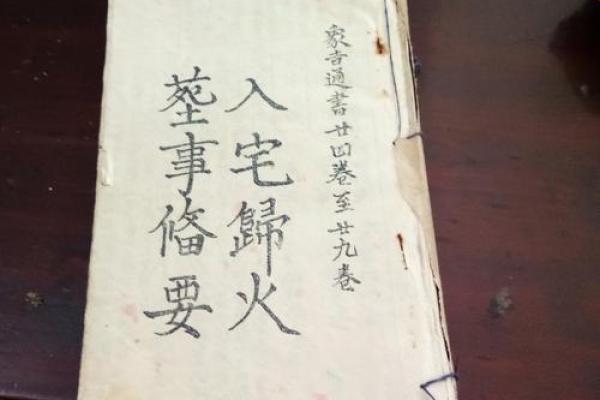 象吉通書廿四卷至廿九卷
入宅歸火
塟事俻要